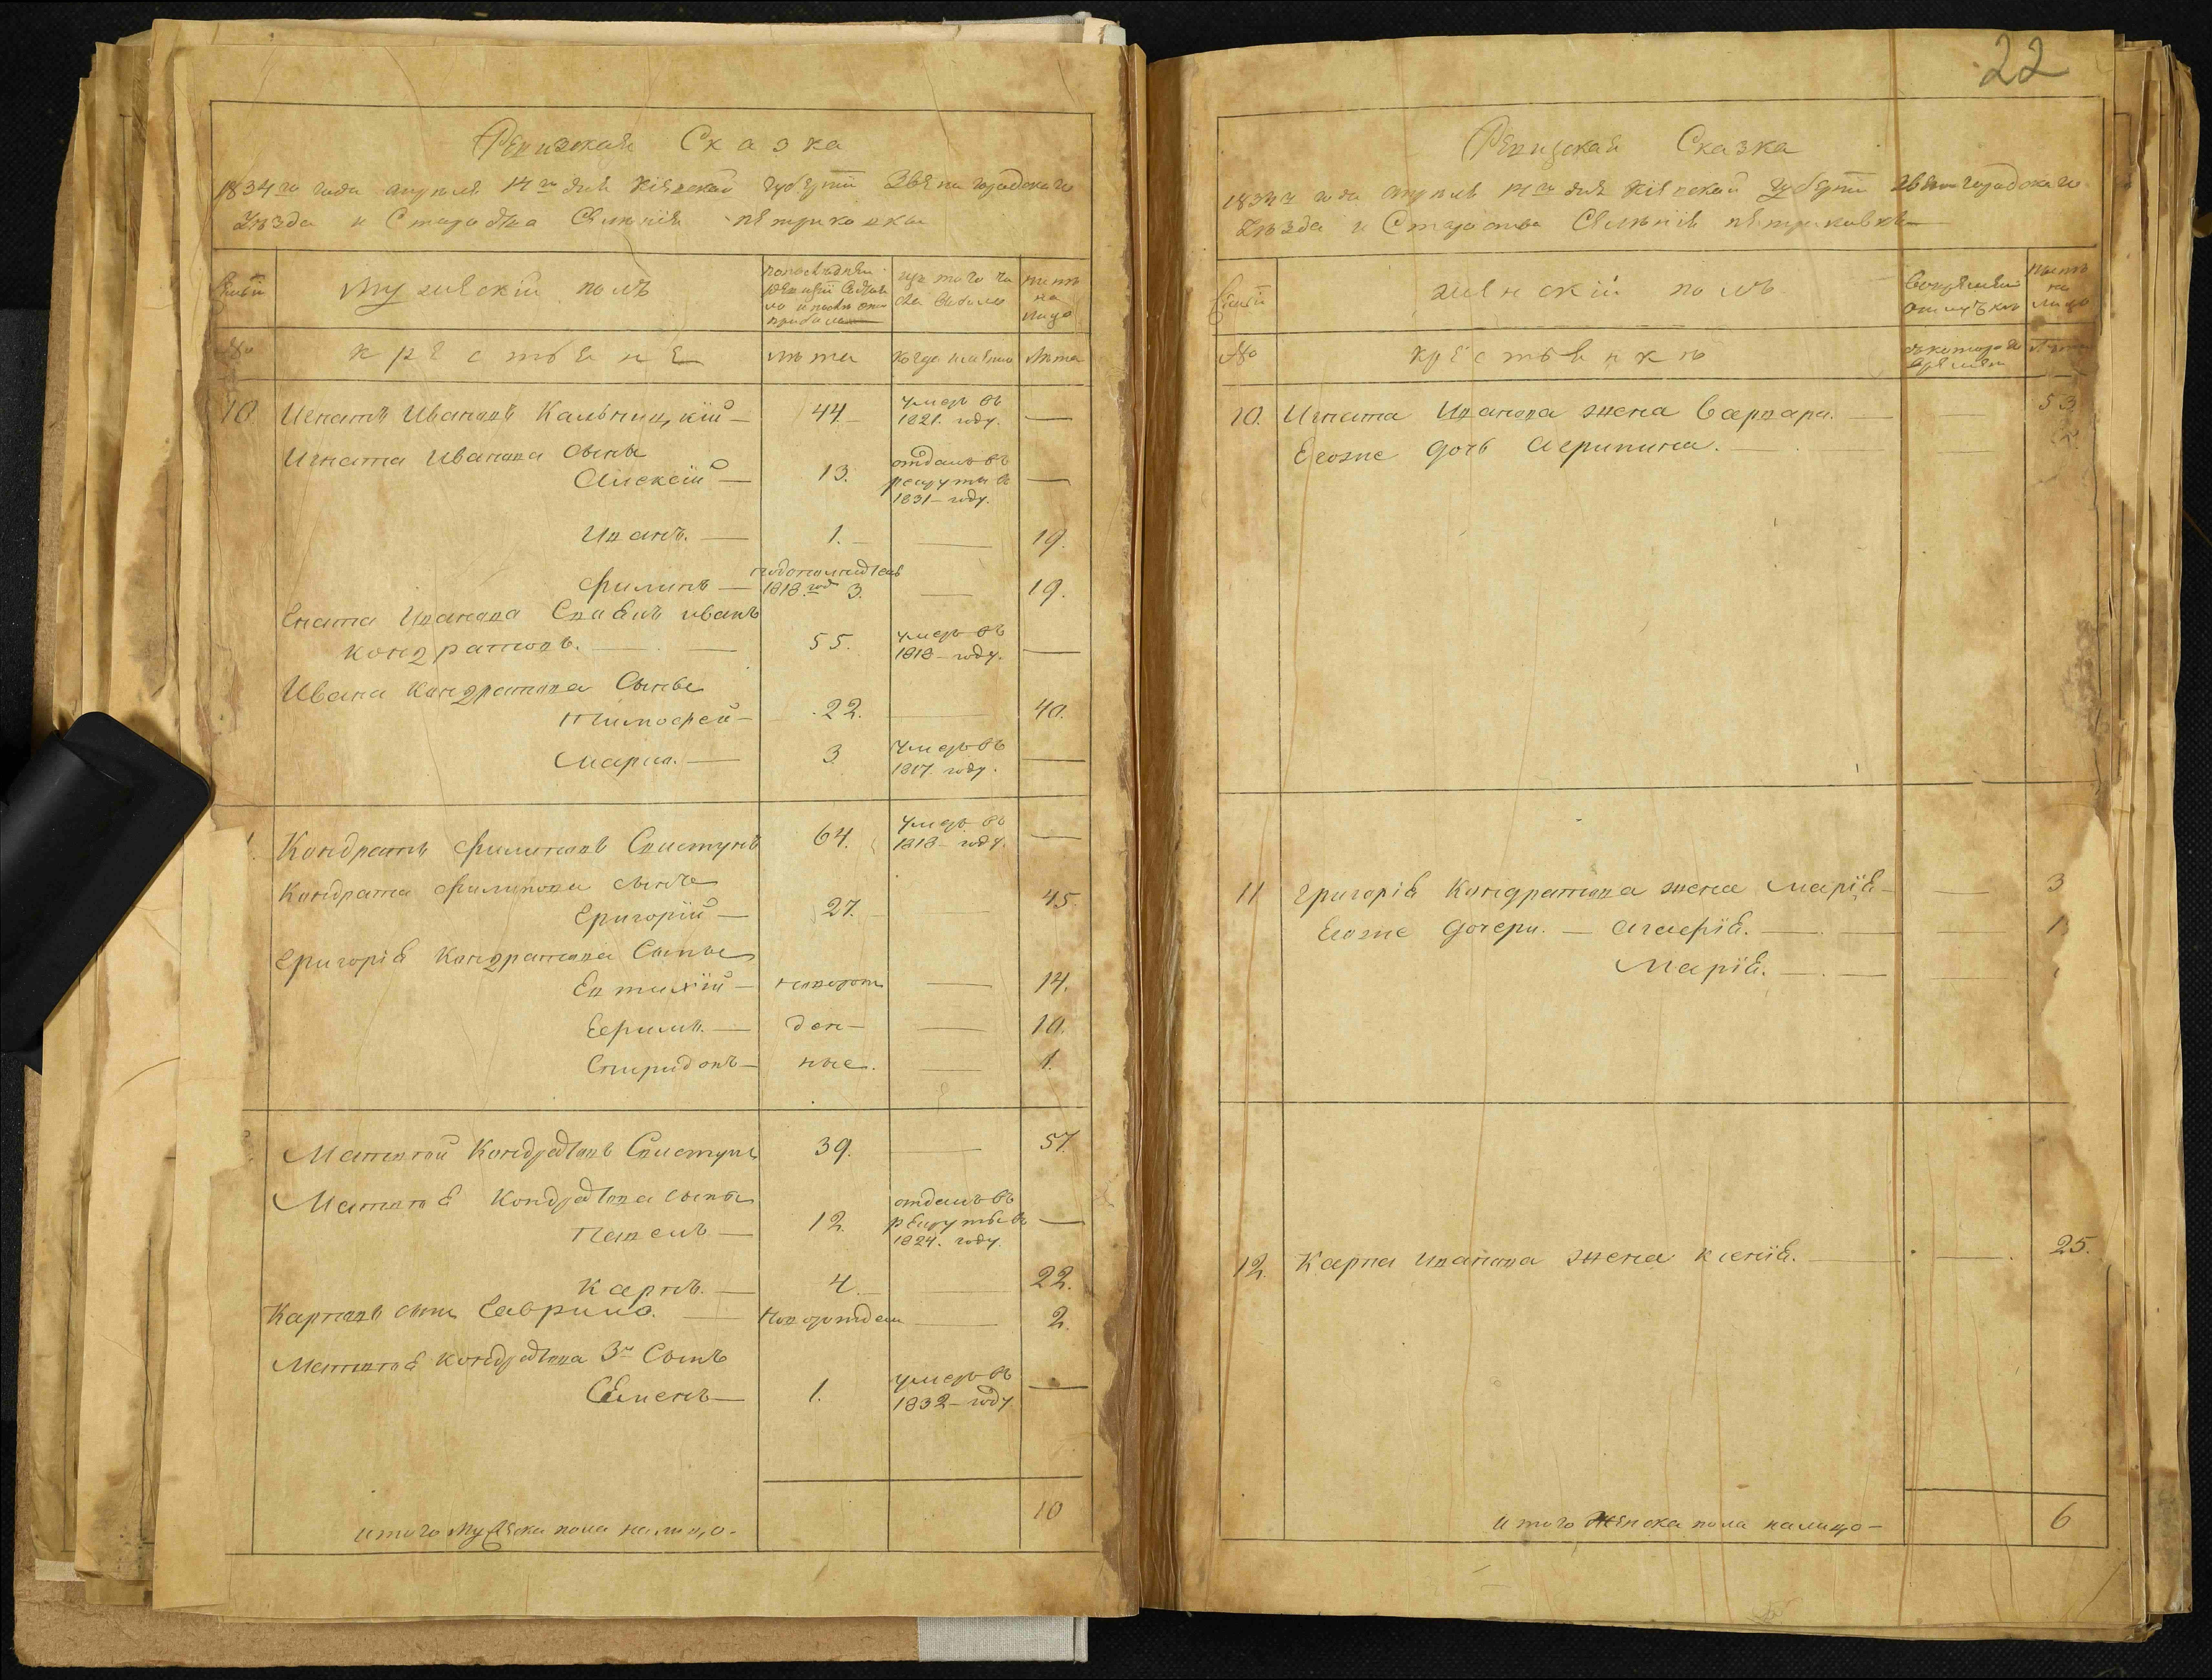 Ревизская Сказка
1834го года апреля 14го дня Кіевской губерніи Звенигородского
Уезда и Староства Селенія Петриковки
Семьи
Мужескій полъ
по последней ревизіи состояло и после оной прибыло
изъ того числа выбыло
ныне на лицо
№
крестьяне
лета
когда именно
лета
10. Игнатъ Ивановъ Кальницкій — 44. — умеръ въ 1821. году. —
Игната Иванова сыны
Алексій — 13. отданъ въ рекруты въ 1831 — году. —
Иванъ. — 1. — — 19.
Филипъ — 1818. года 3. — 19.
Игната Иванова Иванъ
Кондратовъ. — 55. умеръ въ 1818 — году. —
Ивана Кондратова Сыны
Тимофей — 22. — 40.
Марко. — 3. умеръ въ 1817. году. —
Кондратъ Филиповъ Свистунъ 64. умеръ въ 1818 — году. —
Кондрата Филипова сынъ
Григорій — 27. — — 45.
Григорія Кондратова Сыны
Евтихій — новорож — 14.
Ефимъ. — ден — — 10.
Спиридонъ — ные. — 1.
Матвей Кондратовъ Свистунъ 39. — 57.
Матвея Кондратова сыны
Павелъ — 12. отданъ въ рекруты въ 1824. году. —
Карпъ. — 4. — — 22.
Карповъ сынъ Гаврило. — Новорожден — 2.
Матвея Кондратова 3й Сынъ
Семенъ — 1. умеръ въ 1832 — году —
итого Мужеска пола налицо — 10
22
Ревизская Сказка
1834го года апреля 14го дня Кіевской Губерніи Звенигородского
Уезда и Староства Селенія Петриковки
Семьи
женскій полъ
во временной отлучке
ныне на лицо
№
крестьянкъ
съ которого времени
Лета
10. Игната Иванова жена Варвара. — — 53
Егоже дочь Агрипина. — —
11 Григорія Кондратова жена Марія — — 3
Егоже дочери. — Агафія. — — — 1
Марія. — — —
12. Карпа Иванова жена Ксенія. — — 25.
итого Женска пола налицо — 6